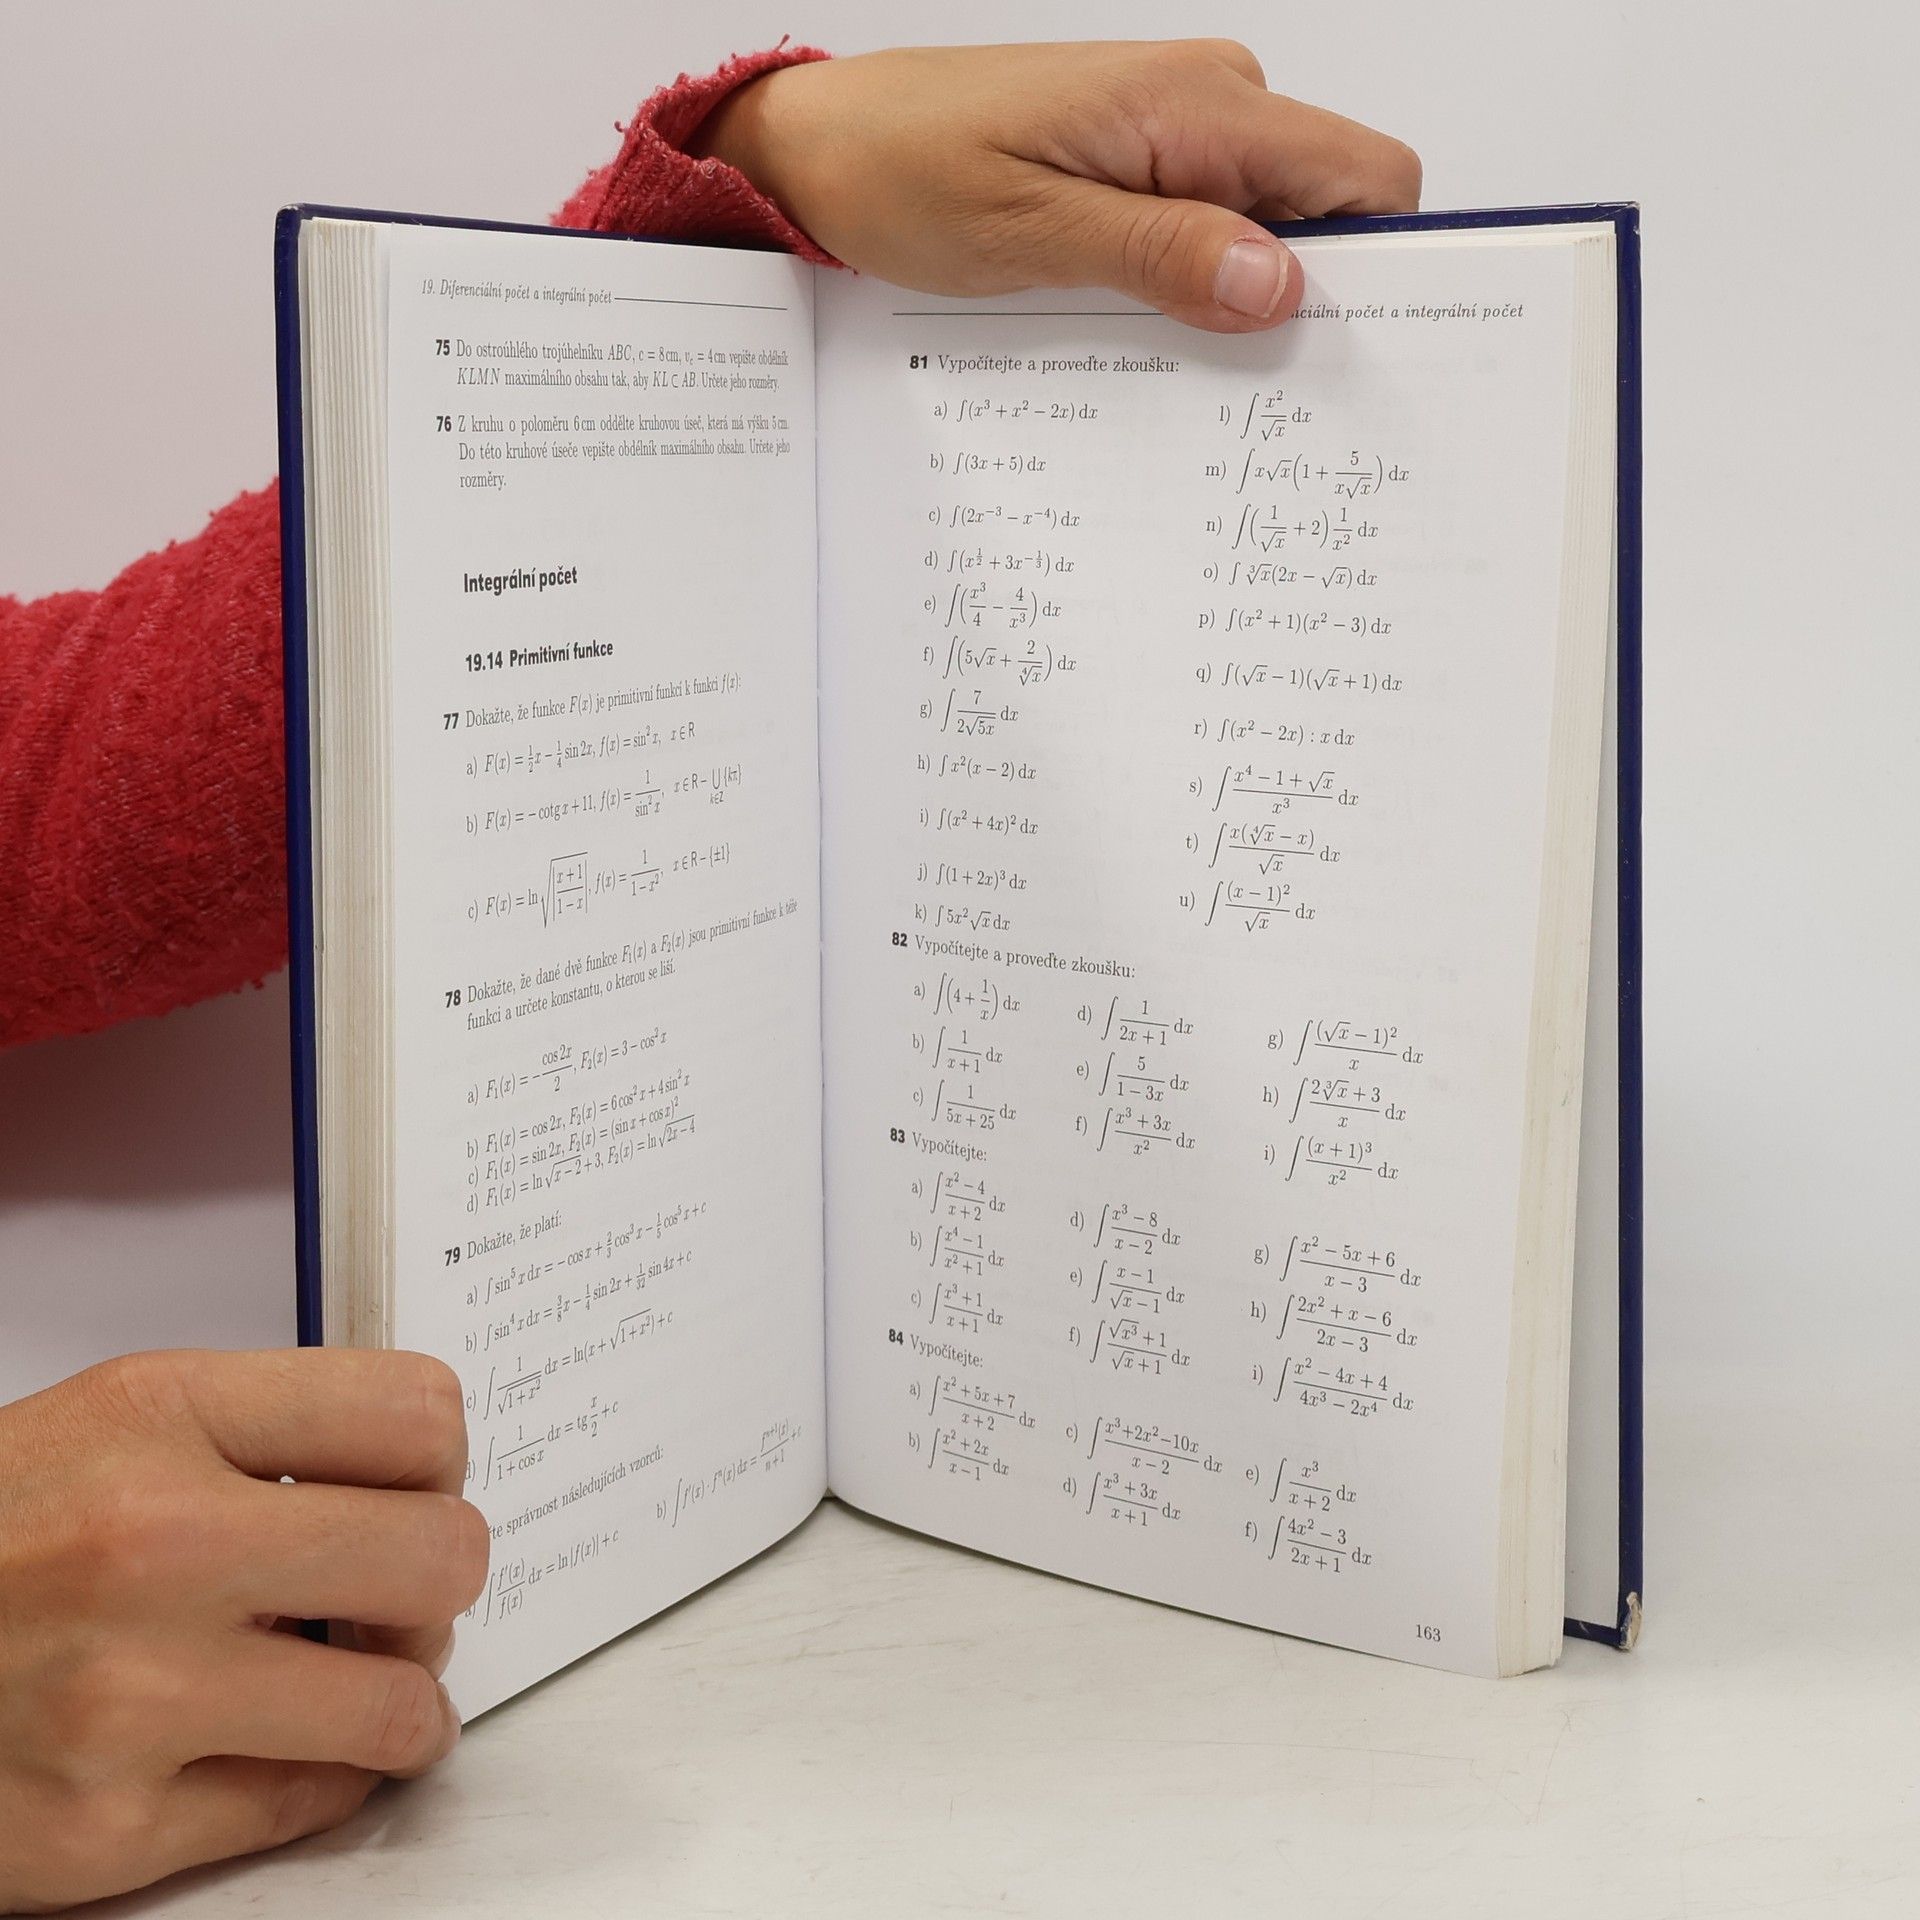 19. Diferenciální počet a integrální počet
75 Do ostroúhlého trojúhelníku ABC, c = 8 cm, v_c = 4 cm vepište obdélník
KLMN maximálního obsahu tak, aby KL ⊂ AB. Určete jeho rozměry.
76 Z kruhu o poloměru 6 cm oddělte kruhovou úseč, která má výšku 5 cm.
Do této kruhové úseče vepište obdélník maximálního obsahu. Určete jeho
rozměry.
Integrální počet
19.14 Primitivní funkce
77 Dokažte, že funkce F(x) je primitivní funkcí k funkci f(x):
a) F(x) = 1/2 x − 1/4 sin 2x, f(x) = sin² x, x ∈ R
b) F(x) = − cotg x + 11, f(x) = 1/sin² x, x ∈ R − ⋃_{k∈Z} {kπ}
c) F(x) = ln √|(x + 1)/(1 − x)|, f(x) = 1/(1 − x²), x ∈ R − {±1}
78 Dokažte, že dané dvě funkce F₁(x) a F₂(x) jsou primitivní funkce k téže
funkci a určete konstantu, o kterou se liší.
a) F₁(x) = − cos 2x/2, F₂(x) = 3 − cos² x
b) F₁(x) = cos 2x, F₂(x) = 6 cos² x + 4 sin² x
c) F₁(x) = sin 2x, F₂(x) = (sin x + cos x)²
d) F₁(x) = ln √(x − 2) + 3, F₂(x) = ln √(2x − 4)
79 Dokažte, že platí:
a) ∫ sin⁵ x dx = − cos x + 2/3 cos³ x − 1/5 cos⁵ x + c
b) ∫ sin⁴ x dx = 3/8 x − 1/4 sin 2x + 1/32 sin 4x + c
c) ∫ 1/√(1 + x²) dx = ln(x + √(1 + x²)) + c
d) ∫ 1/(1 + cos x) dx = tg x/2 + c
správnost následujících vzorců:
a) ∫ f′(x)/f(x) dx = ln |f(x)| + c b) ∫ f′(x) · fⁿ(x) dx = fⁿ⁺¹(x)/(n + 1) + c
počet a integrální počet
81 Vypočítejte a proveďte zkoušku:
a) ∫(x³ + x² − 2x) dx
b) ∫(3x + 5) dx
c) ∫(2x⁻³ − x⁻⁴) dx
d) ∫(x^(1/2) + 3x^(−1/3)) dx
e) ∫(x³/4 − 4/x³) dx
f) ∫(5√x + 2/∜x) dx
g) ∫ 7/(2√(5x)) dx
h) ∫ x²(x − 2) dx
i) ∫(x² + 4x)² dx
j) ∫(1 + 2x)³ dx
k) ∫ 5x² √x dx
l) ∫ x²/√x dx
m) ∫ x√x(1 + 5/(x√x)) dx
n) ∫(1/√x + 2) 1/x² dx
o) ∫ ∛x(2x − √x) dx
p) ∫(x² + 1)(x² − 3) dx
q) ∫(√x − 1)(√x + 1) dx
r) ∫(x² − 2x) : x dx
s) ∫ (x⁴ − 1 + √x)/x³ dx
t) ∫ x(∜x − x)/√x dx
u) ∫ (x − 1)²/√x dx
82 Vypočítejte a proveďte zkoušku:
a) ∫(4 + 1/x) dx
b) ∫ 1/(x + 1) dx
c) ∫ 1/(5x + 25) dx
d) ∫ 1/(2x + 1) dx
e) ∫ 5/(1 − 3x) dx
f) ∫ (x³ + 3x)/x² dx
g) ∫ (√x − 1)²/x dx
h) ∫ (2∛x + 3)/x dx
i) ∫ (x + 1)³/x² dx
83 Vypočítejte:
a) ∫ (x² − 4)/(x + 2) dx
b) ∫ (x⁴ − 1)/(x² + 1) dx
c) ∫ (x³ + 1)/(x + 1) dx
d) ∫ (x³ − 8)/(x − 2) dx
e) ∫ (x − 1)/(√x − 1) dx
f) ∫ (√x³ + 1)/(√x + 1) dx
g) ∫ (x² − 5x + 6)/(x − 3) dx
h) ∫ (2x² + x − 6)/(2x − 3) dx
i) ∫ (x² − 4x + 4)/(4x³ − 2x⁴) dx
84 Vypočítejte:
a) ∫ (x² + 5x + 7)/(x + 2) dx
b) ∫ (x² + 2x)/(x − 1) dx
c) ∫ (x³ + 2x² − 10x)/(x − 2) dx
d) ∫ (x³ + 3x)/(x + 1) dx
e) ∫ x³/(x + 2) dx
f) ∫ (4x² − 3)/(2x + 1) dx
163